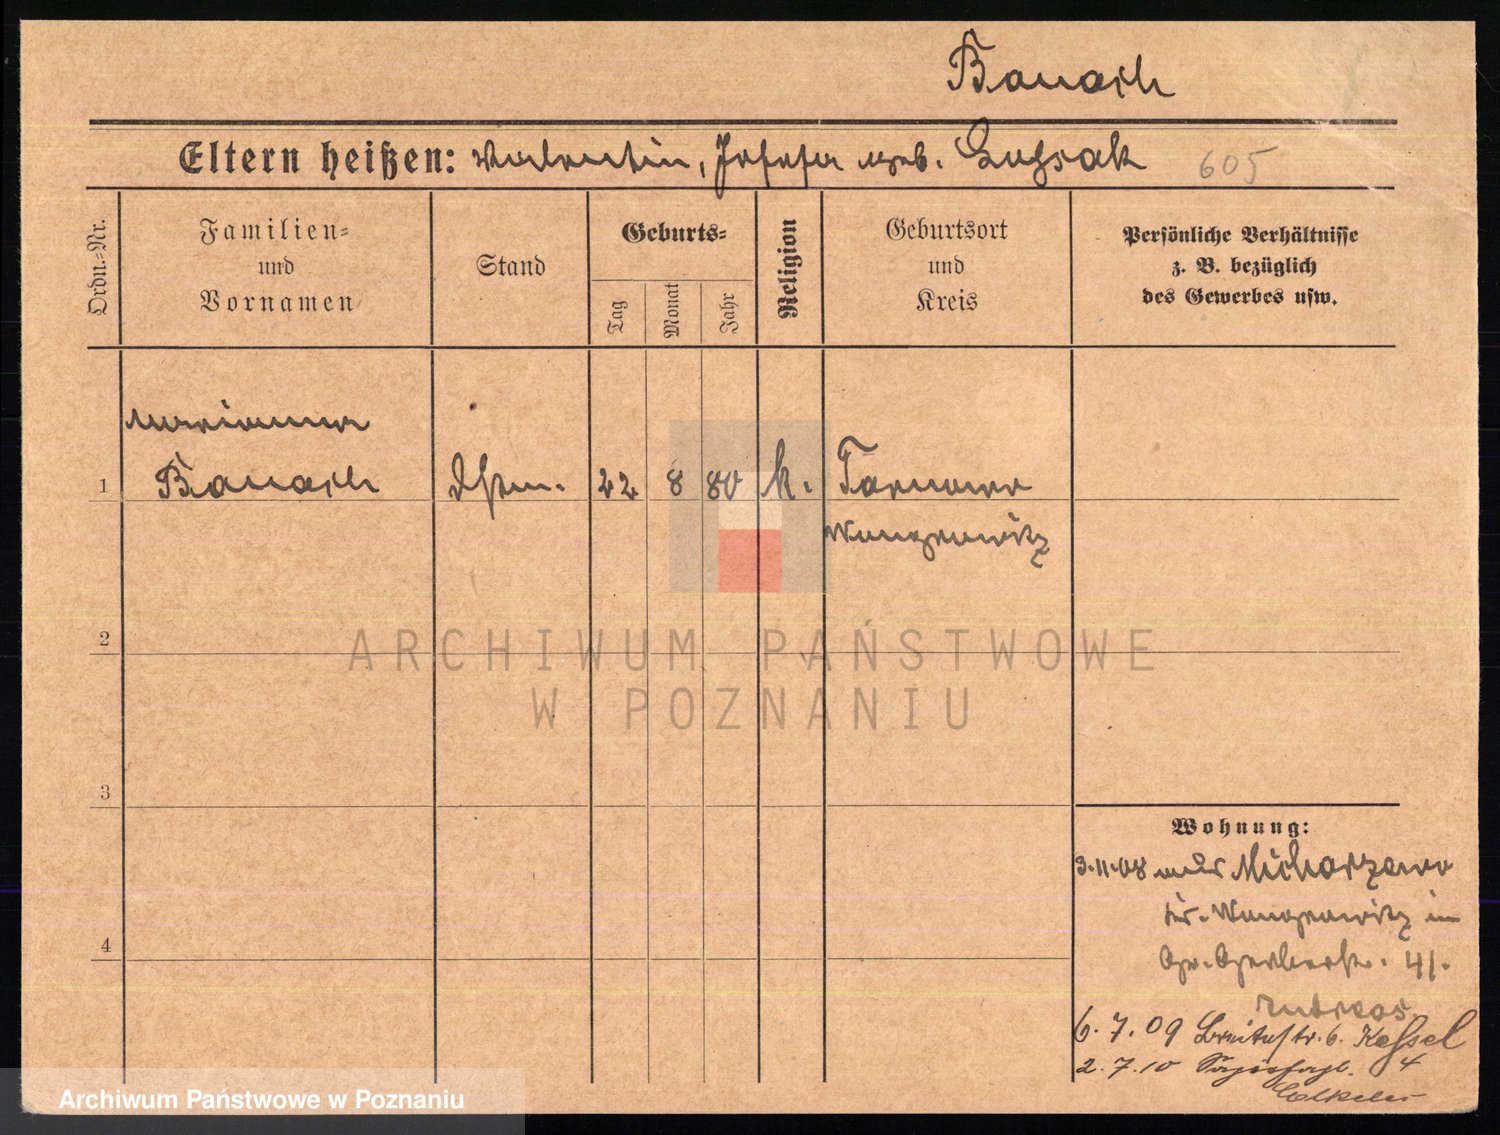 Banach
Eltern heißen: Valentin, Josefa geb. 605
Ordn.-Nr.
Familien-
und
Vornamen
Stand
Geburts-
Tag
Monat
Jahr
Religion
Geburtsort
und
Kreis
Persönliche Verhältnisse
z. B. bezüglich
des Gewerbes usw.
Marianna
1 Banach 22 8 80 k. Tarnowo
Wongrowitz
2
ARCHIWUM PAŃSTWOWE
W POZNANIU
3
Wohnung:
3.11.08 aus
Kr. Wongrowitz in
4
Gr. Gerberstr. 41.
6.7.09 Breitestr. 6. Kessel
2.7.10 4
Archiwum Państwowe w Poznaniu